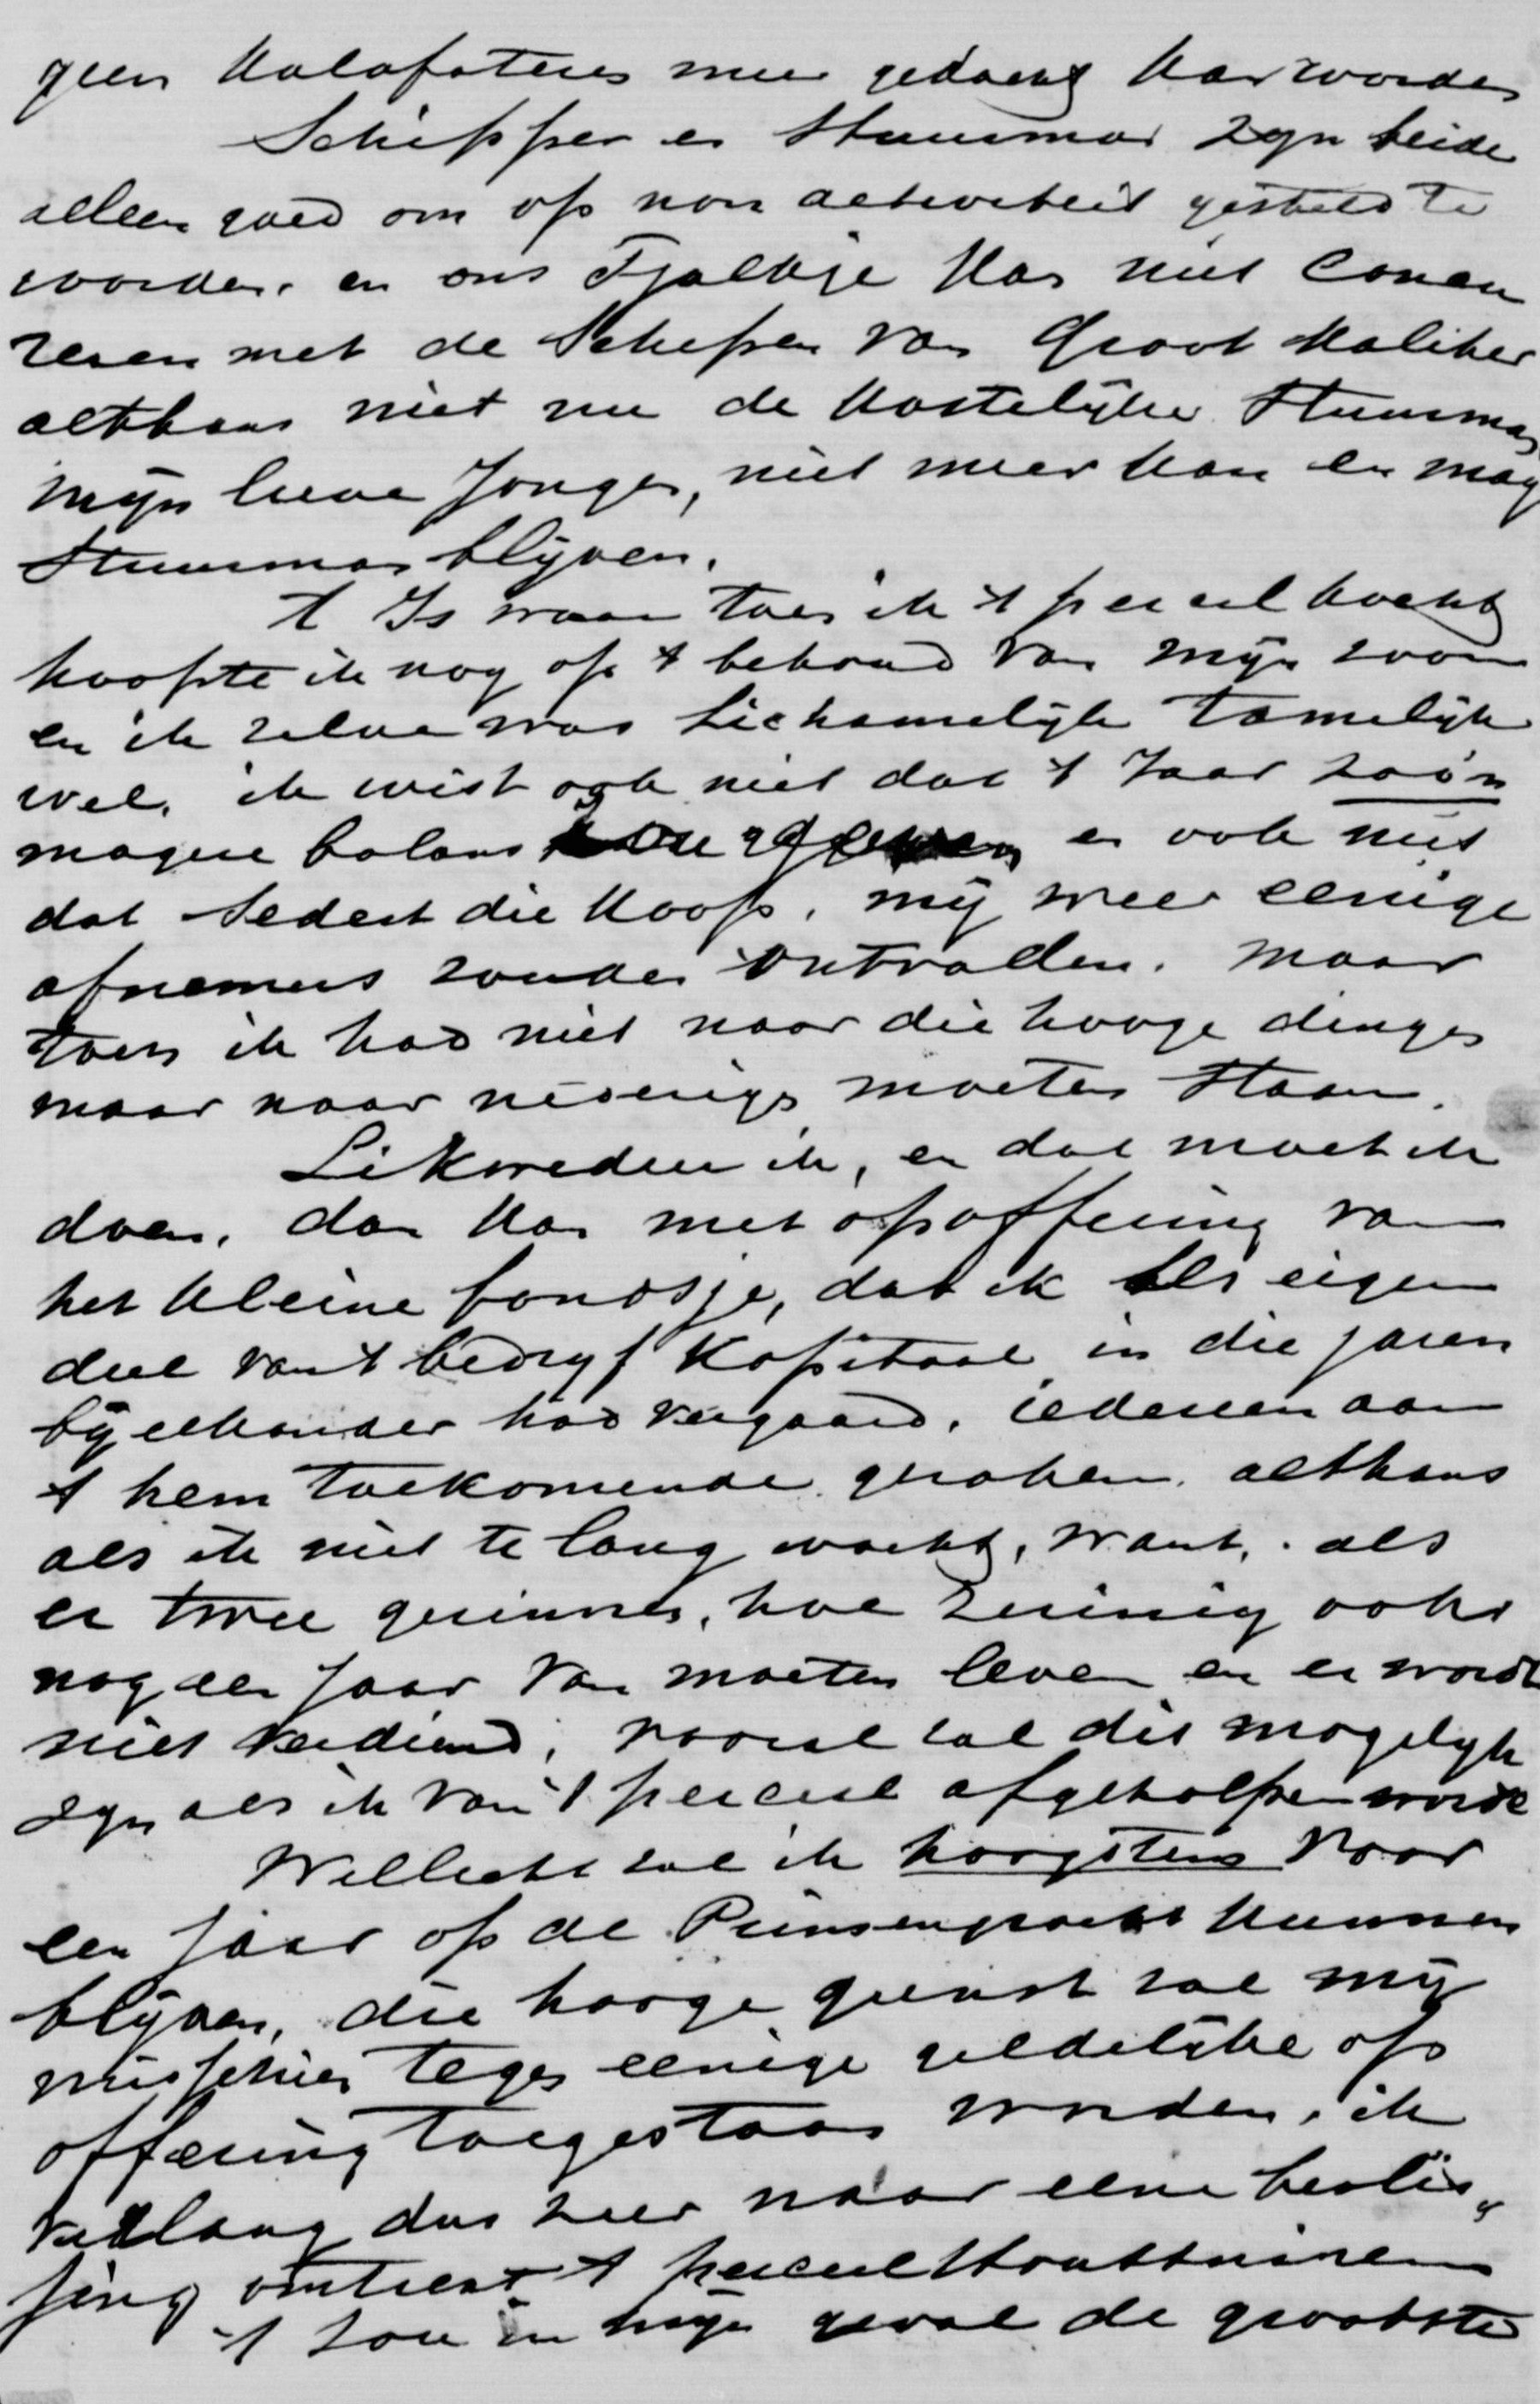 geen Kalafateren meer gedacht kan worden
Schipper en Stuurman zyn beide
alleen goed om op non activiteit gesteld te
worden. en ons Tjalkje kan niet concur
reren met de Schepen van Groot Kaliber
althans niet nu de kostelyke Stuurman
myn lieve Jongen, niet meer kan en mag
Stuurman blyven.
't Is waar toen ik 't perceel kocht
hoopte ik nog op 't behoud van myn zoon
en ik zelve was lichamelyk tamelyk
wel, ik wist ook niet dat 't Jaar zoo'n
magere balans zou en ook niet
dat sedert die koop, my weer eenige
afnemers zouden ontvallen. maar
toen ik had niet naar die hooge dingen
maar naar nederige moeten staan.
Likwideer ik, en dat moet ik
doen, dan kan met opoffering van
het kleine fondsje, dat ik als eigen
deel van 't bedryf Kapitaal in die jaren
by elkander had vergaard, iedereen aan
't hem toekomende geraken. althans
als ik niet te lang wacht, want, als
er twee gezinnen, hoe zuinig ook
nog een Jaar van moeten leven en er wordt
niet verdiend, vooral zal dit mogelyk
zyn als ik van 't perceel afgeholpen worde
Wellicht zal ik hoogstens voor
een Jaar op de Prinsengracht kunnen
blyven, die hooge gunst zal my
misschien tegen eenige geldelyke op
offering toegestaan worden, ik
verlang dus zeer naar eene beslis„
sing omtrent 't perceel Houttuinen
't zou in myn geval de grootste